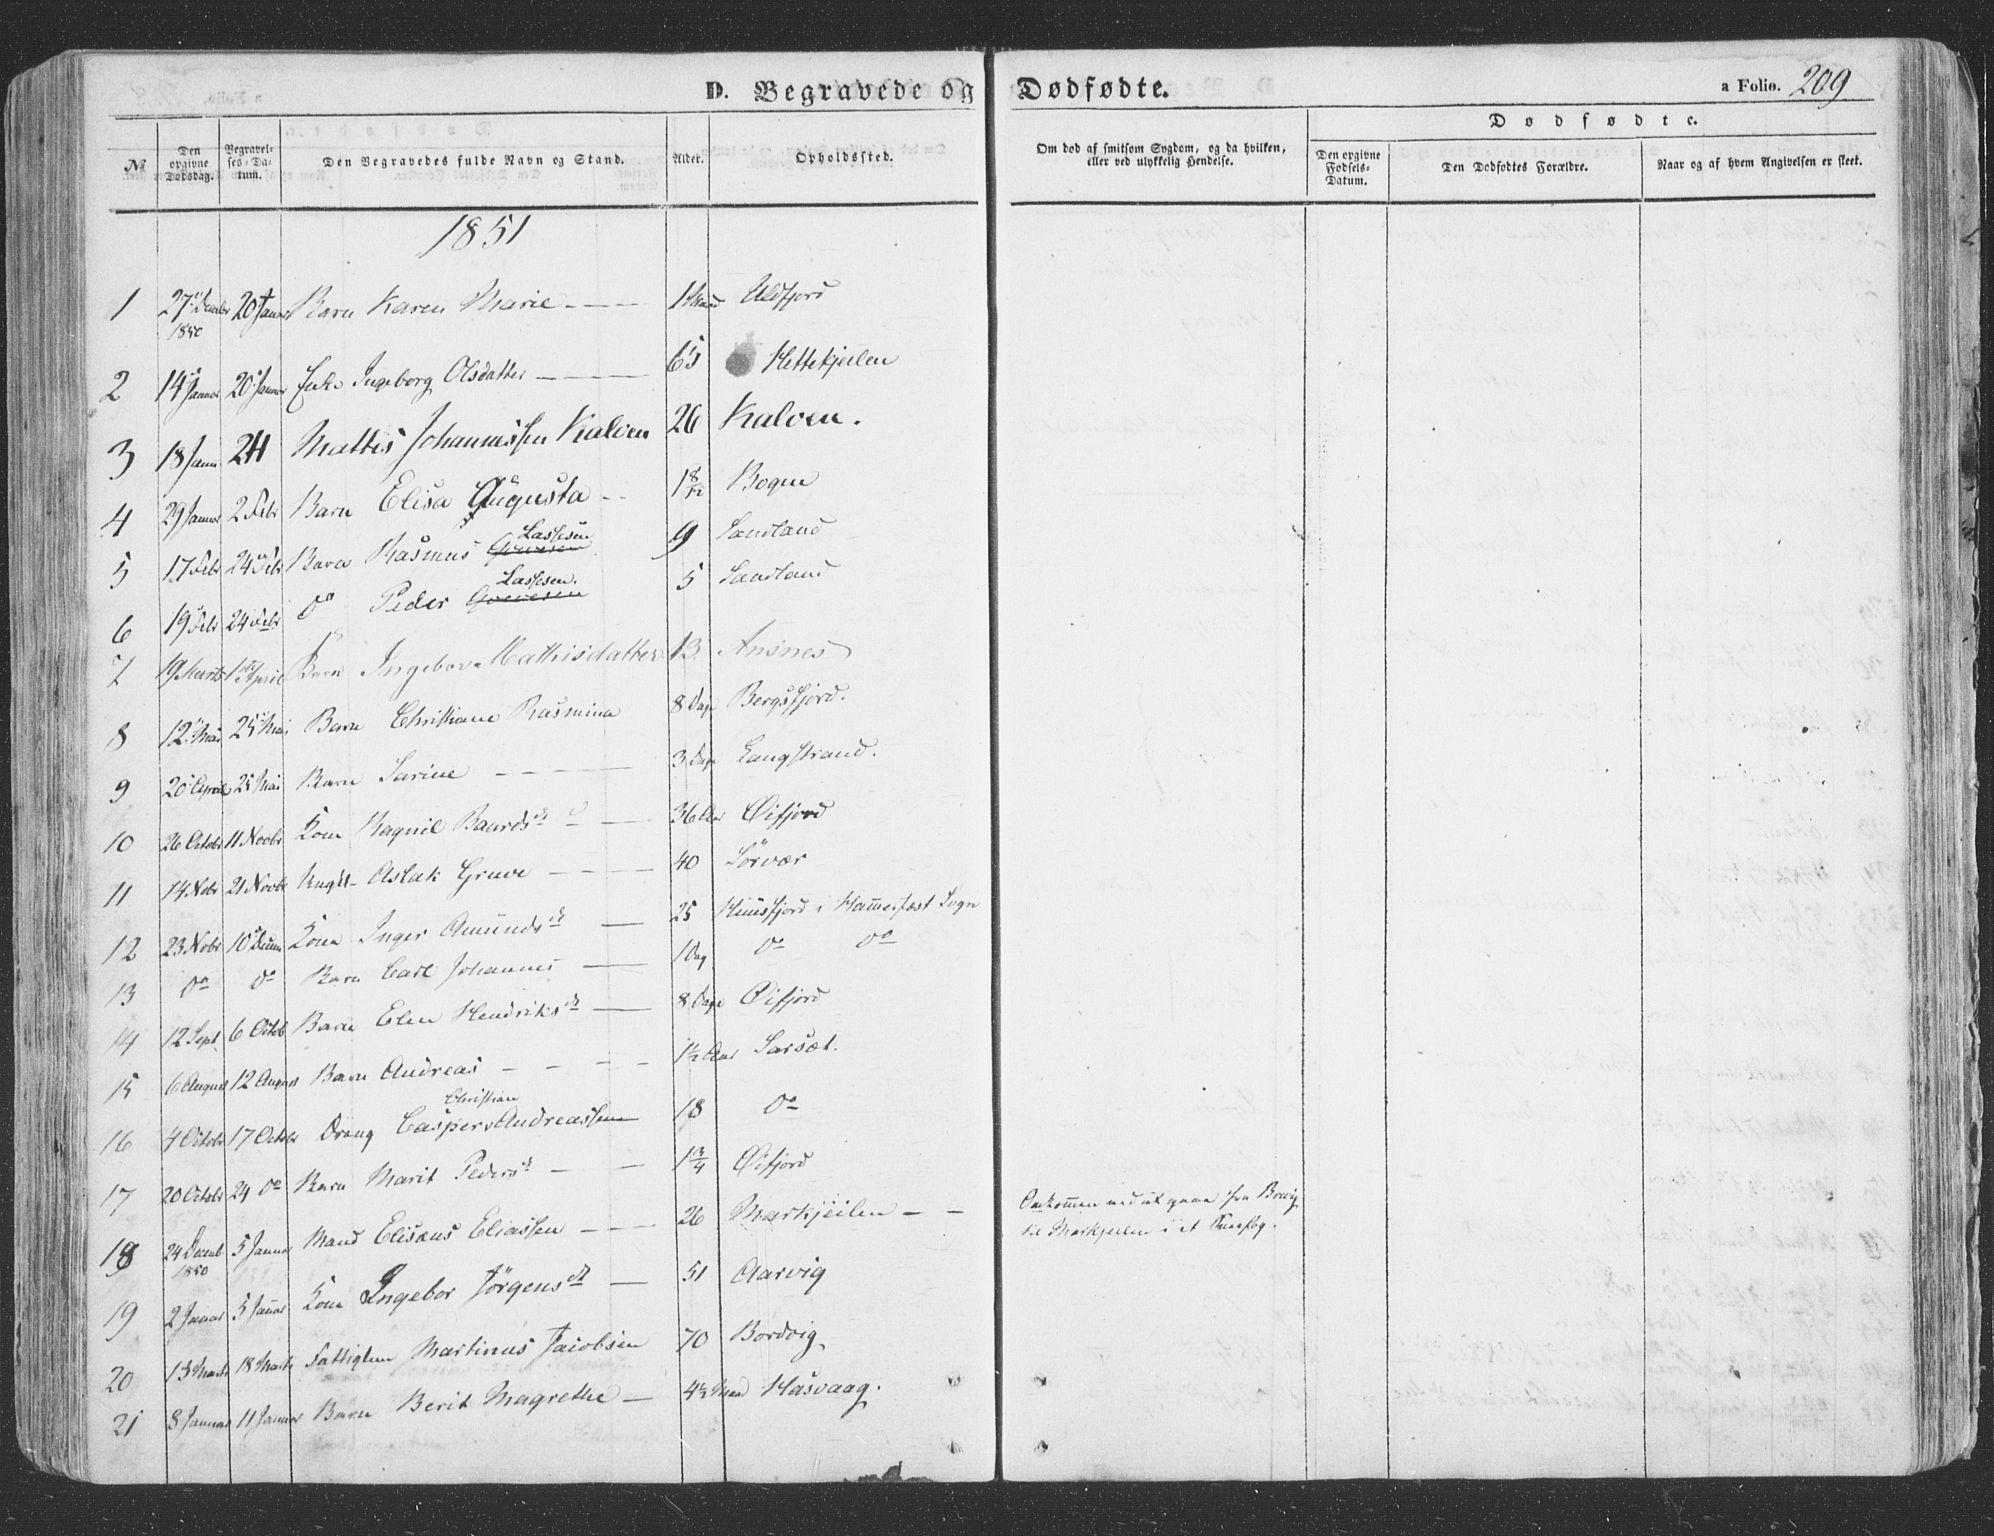 D. Begravede og Dødfødte.
a Folio. 209
Dødfødte.
№ Den opgivne Dødsdag. Begravelses-Datum. Den Begravedes fulde Navn og Stand. Alder. Opholdssted. Om død af smitsom Sygdom, og da hvilken, eller ved ulykkelig Hendelse. Den opgivne Fødsels-Datum. Den Dødfødtes Forældre. Naar og af hvem Angivelsen er skeet.
1851
1 27 Decembr 1850 20 Januar Barn Karen Marie 1 Maaned Uldfjord
2 14 Januar 20 Januar Enke Ingeborg Olsdatter 65 Hettekjeilen
3 18 Janu 24 Mattis Johannissen Kalven 26 Kalven.
4 29 Januar 2 Febr Barn Elisa Augusta 1 8/12 Bogen
5 17 Febr 24 Febr Barn Rasmus Lassesen 9 Sandland
6 19 Febr 24 Febr Do Peder Lassesen. 5 Sandland
7 19 Marts 1 April Barn Ingebor Mathisdatter 13 Ansnes
8 12 Mai 25 Mai Barn Christiane Rasmina 8 Dage Bergsfjord.
9 20 April 25 Mai Barn Sarine 3 Dage Langstrand.
10 26 Octobr 11 Novbr Kone Magnil Baards dt 36 Aar Øifjord
11 14 Nobr 21 Novbr Ungk. Aslak Gruve 40 Sørvær
12 23 Nobr 10 Decem Kone Inger Amunds dt 25 i Hammerfæst Sogn
13 Do Do Barn Carl Johannes 1 Dag Do Do
14 12 Sept. 6 Octob Barn Elen Hendriks dt 8 Dage Øifjord
15 6 August 12 August Barn Andreas 1½ Aar Sarsæt.
16 4 Octobr 17 Octobr Dreng Casper Christian Andreassen 18 Do
17 20 Octobr 24 Do Barn Marit Peders dt 1 3/4 Øifjord
18 24 Decemb 1850 5 Januar Mand Elisæus Eliassen 26 Markjeilen Omkommen ved at gaae fra Brevig
til Markjeilen i et Sneefog.
19 2 Januar 5 Januar Kone Ingebor Jørgens dt 51 Aarvig
20 13 Marts 18 Marts Fattiglem Martinus Jacobsen 70 Bordvig
21 8 Januar 11 Januar Barn Berit Magrethe 4½ Maa Hasvaag.